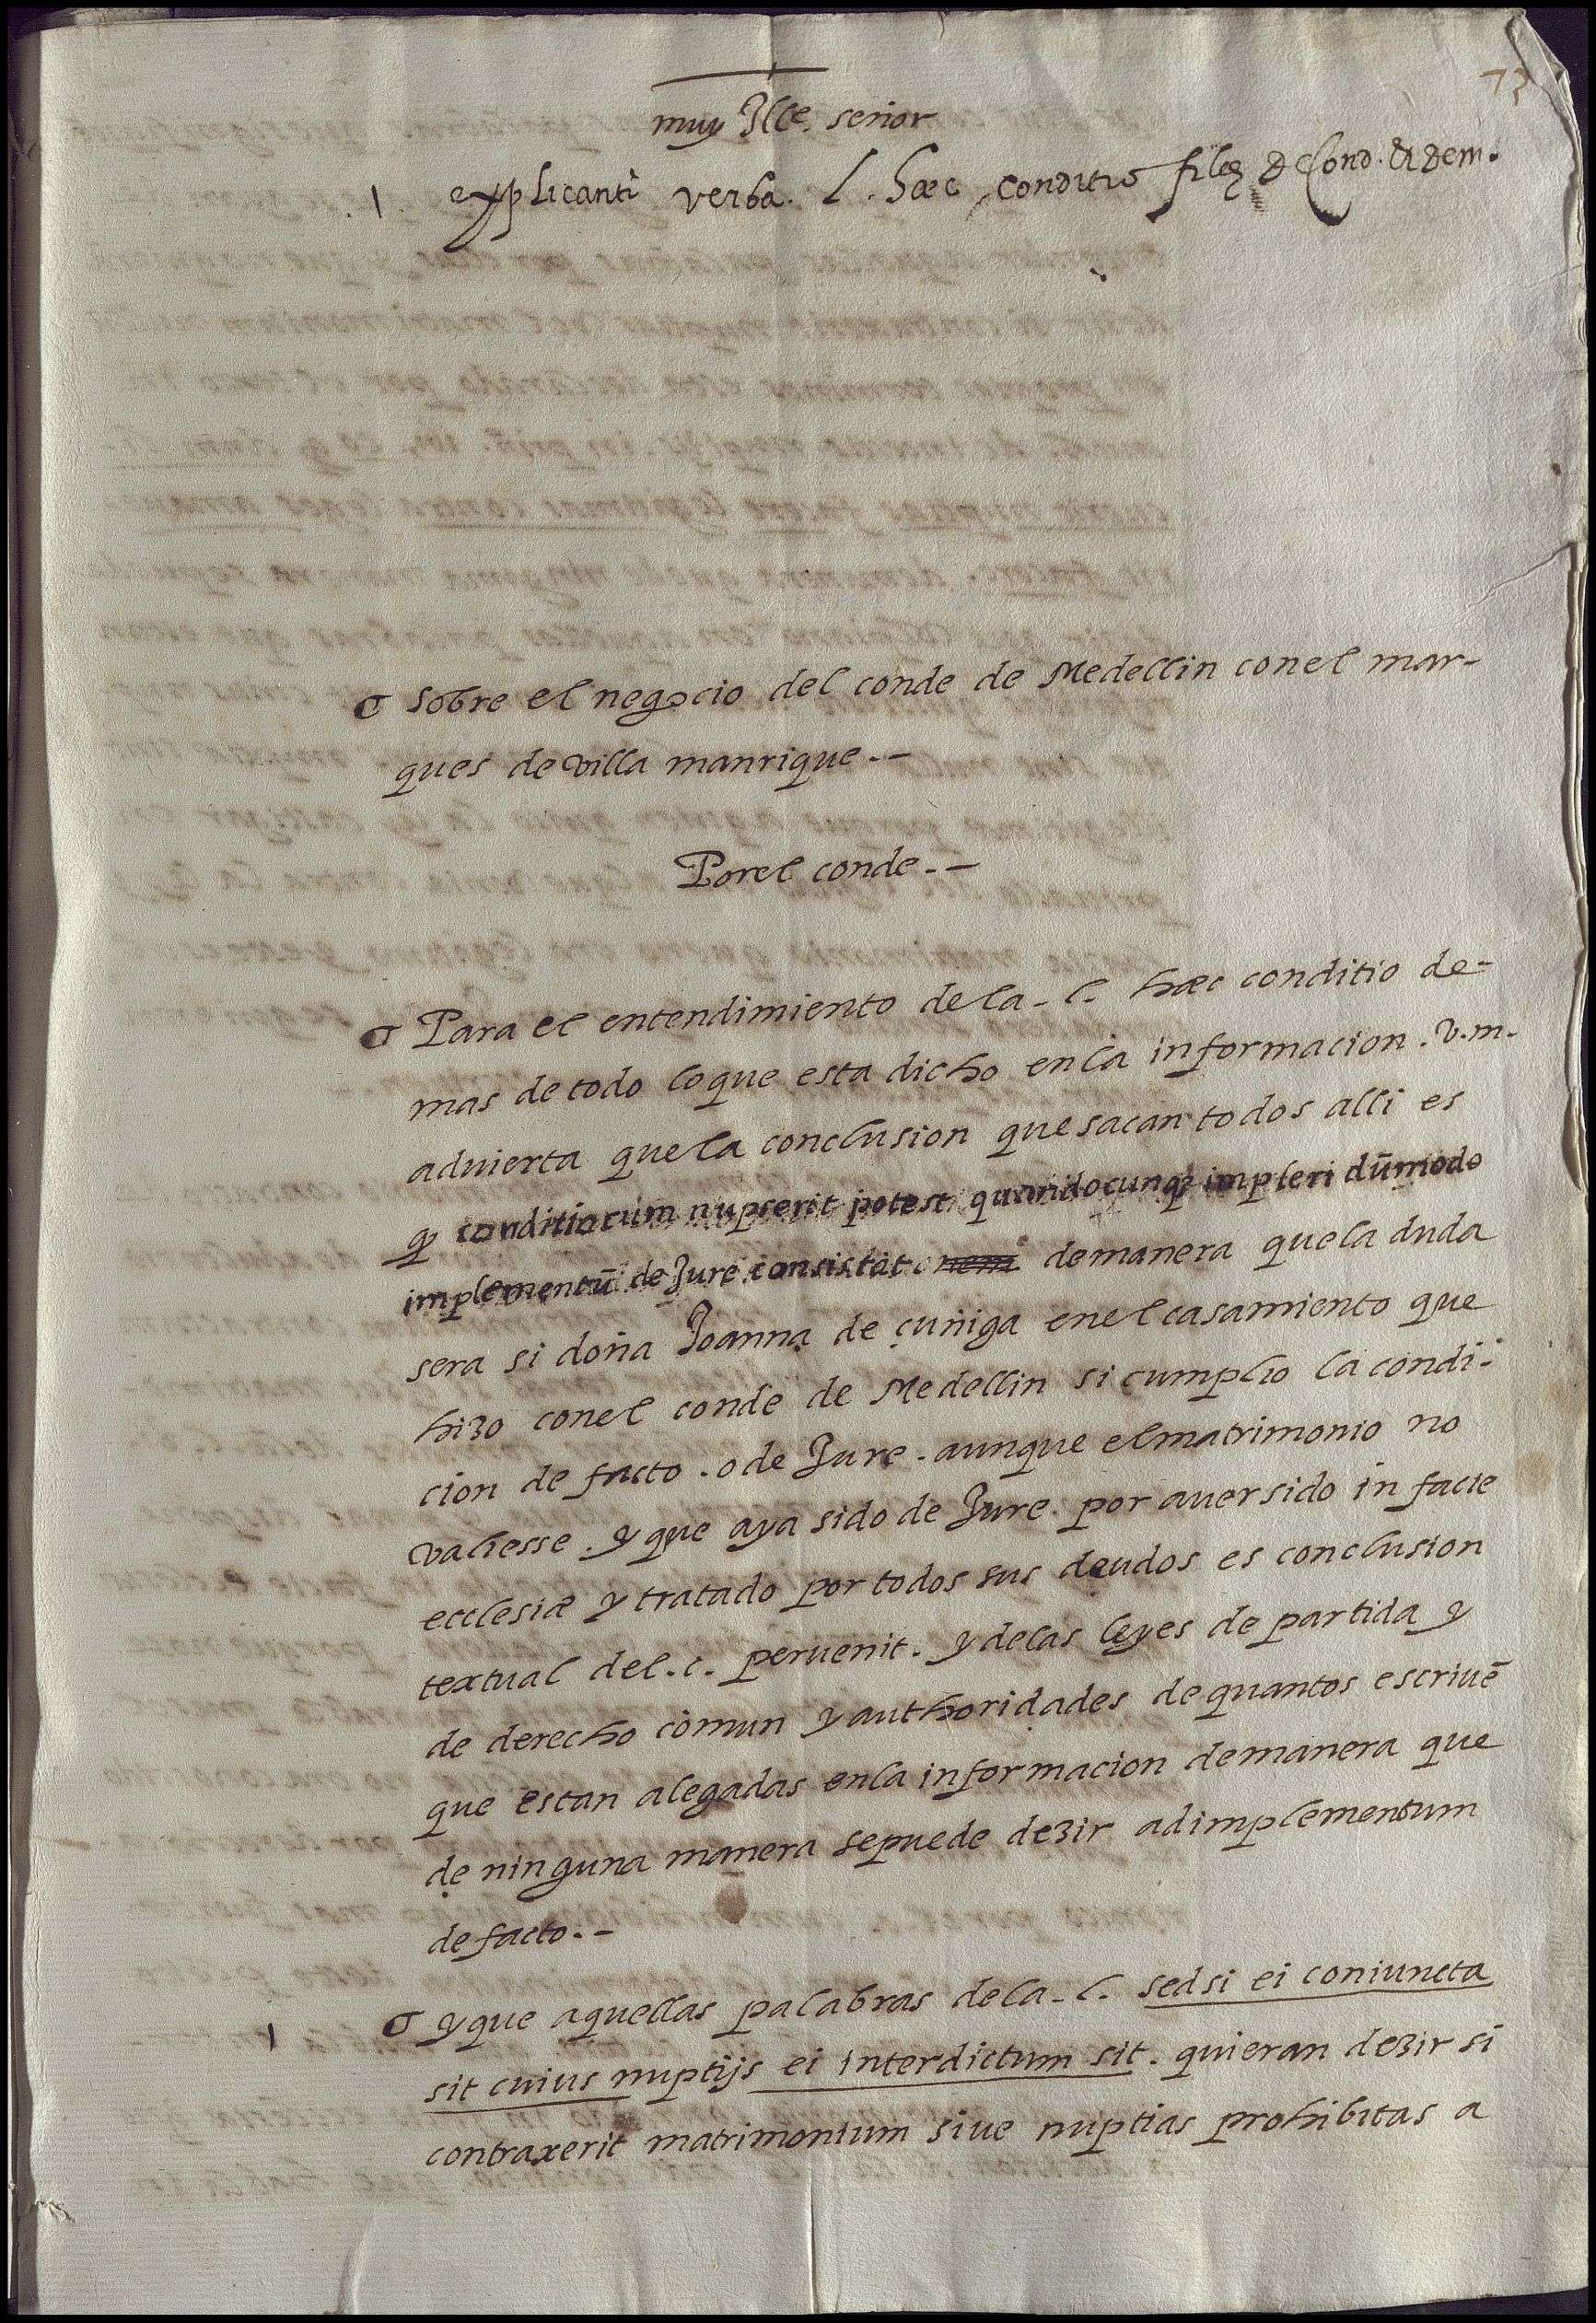 73
muy Ille. señor
.1. explicanti verba. l. hæc conditio filiæ de Cond. & dem.
σ sobre el negocio del conde de Medellin con el mar-
ques de villa manrique.-
Por el conde.-
σ Para el entendimiento de la - l. hæc conditio de-
mas de todo lo que esta dicho en la informacion. v.m.
advierta que la conclusion que sacan todos alli es
q conditio cum nupserit potest quandocunq impleri dūmodo
implementū de Jure consistat demanera que la duda
sera si doña Joanna de çuñiga en el casamiento que
hizo con el conde de Medellin si cumplio la condi-
cion de facto. o de Jure. aunque el matrimonio no
valiesse. y que aya sido de Jure. por aver sido in facie
ecclesiæ y tratado por todos sus deudos es conclusion
textual del. c. pervenit. y de las leyes de partida y
de derecho comun y authoridades de quantos escrivē
que estan alegadas en la informacion demanera que
de ninguna manera se puede dezir adimplementum
de facto.-
1 σ y que aquellas palabras de la - l. sed si ei coniuncta
sit cuius nuptijs ei interdictum sit. quieran dezir si
contraxerit matrimonium sive nuptias prohibitas a